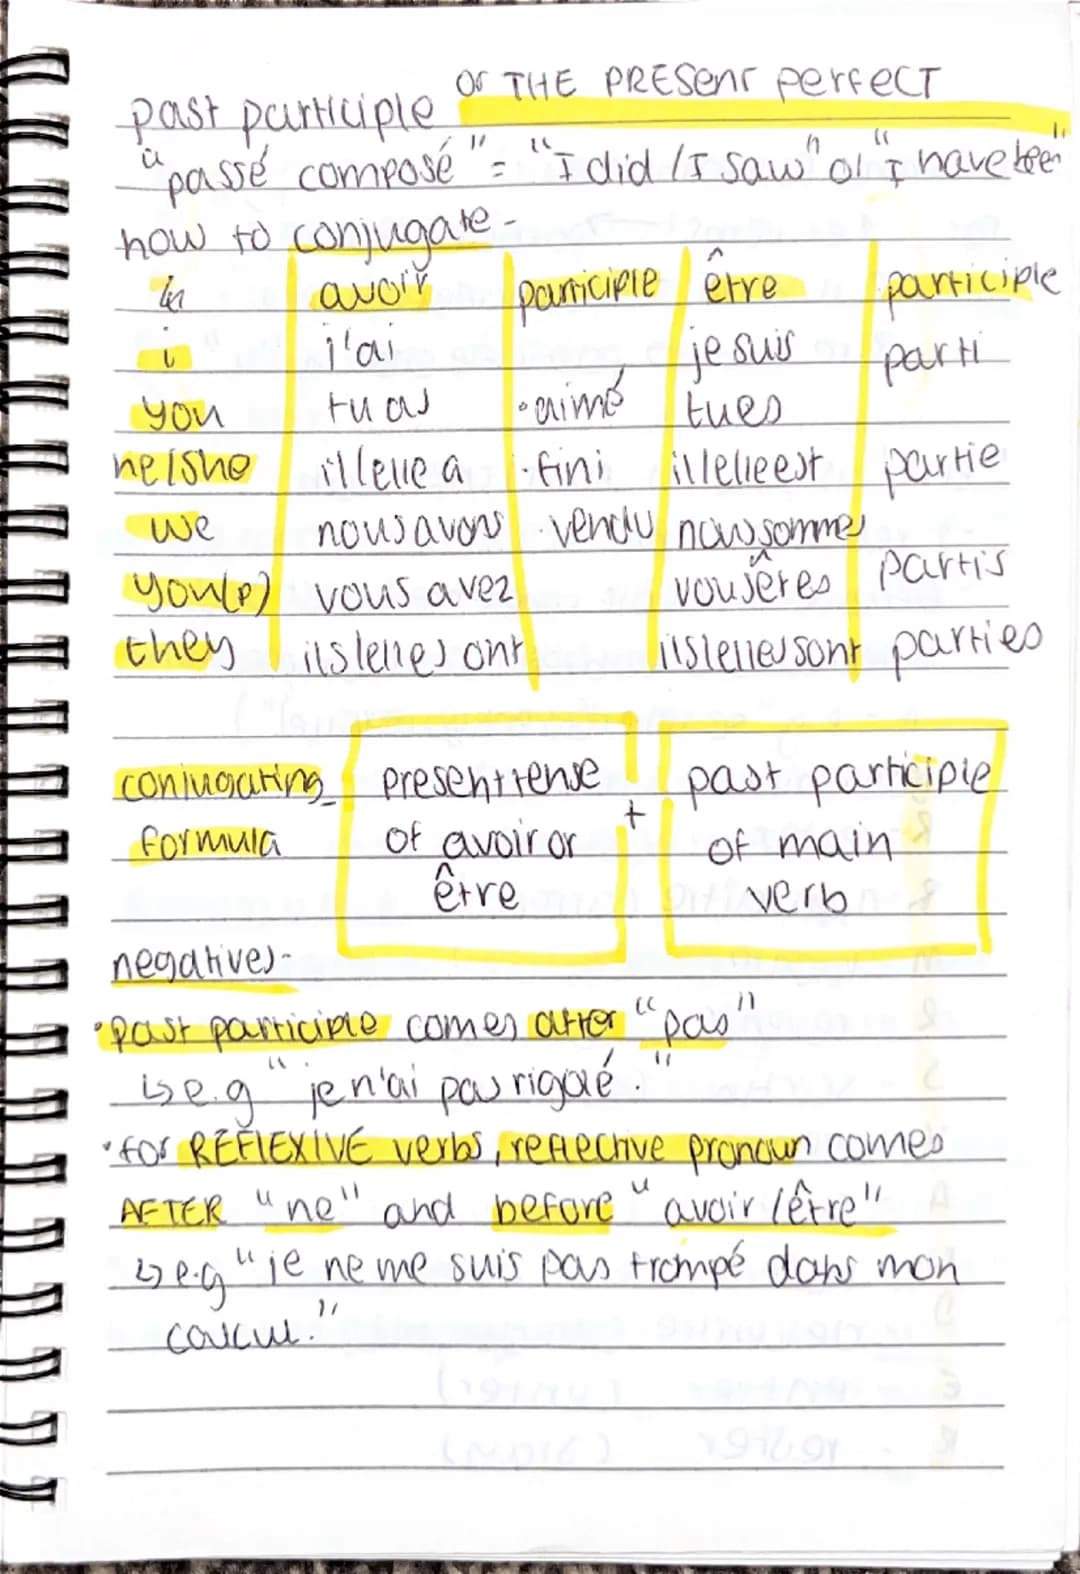 past participle or THE PRESENT perfect
"passé composé" = "I did / I saw" or "I have been"
how to conjugate -
avoir participle être participle
i j'ai je suis parti
you tu as • aimé tu es
he/she il/elle a • fini il/elle est partie
we nous avons • vendu nous sommes
you(p) vous avez vous êtes partis
they ils/elles ont ils/elles sont parties
conjugating present tense + past participle
formula of avoir or of main
être verb
negatives-
• past participle comes after "pas"
↳ e.g "je n'ai pas rigolé."
• for REFLEXIVE verbs, reflective pronoun comes
AFTER "ne" and before "avoir / être"
↳ e.g "je ne me suis pas trompé dans mon
calcul."